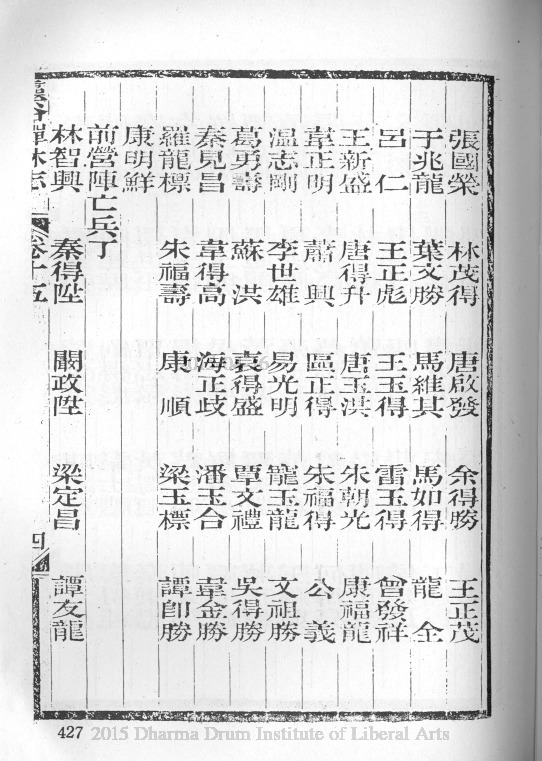 張國榮 林茂得 唐啟發 余得勝 王正茂
于兆龍 葉文勝 馬維其 馬如得 龍全
呂仁 王正彪 王玉得 雷玉得 曾發祥
王新盛 唐得升 唐玉洪 朱朝光 康福龍
韋正明 蕭興 區正得 朱福得 公義
溫志剛 李世雄 易光明 龍玉龍 文祖勝
葛勇壽 蘇洪 袁得盛 覃文禮 吳得勝
秦見昌 韋得高 海正歧 潘玉合 韋金勝
羅龍標 朱福壽 康順 梁玉標 譚卽勝
康明鮮
前營陣亡兵丁
林智興 秦得陞 闞政陞 梁定昌 譚友龍
禪林志 卷十五 四
427 2015 Dharma Drum Institute of Liberal Arts